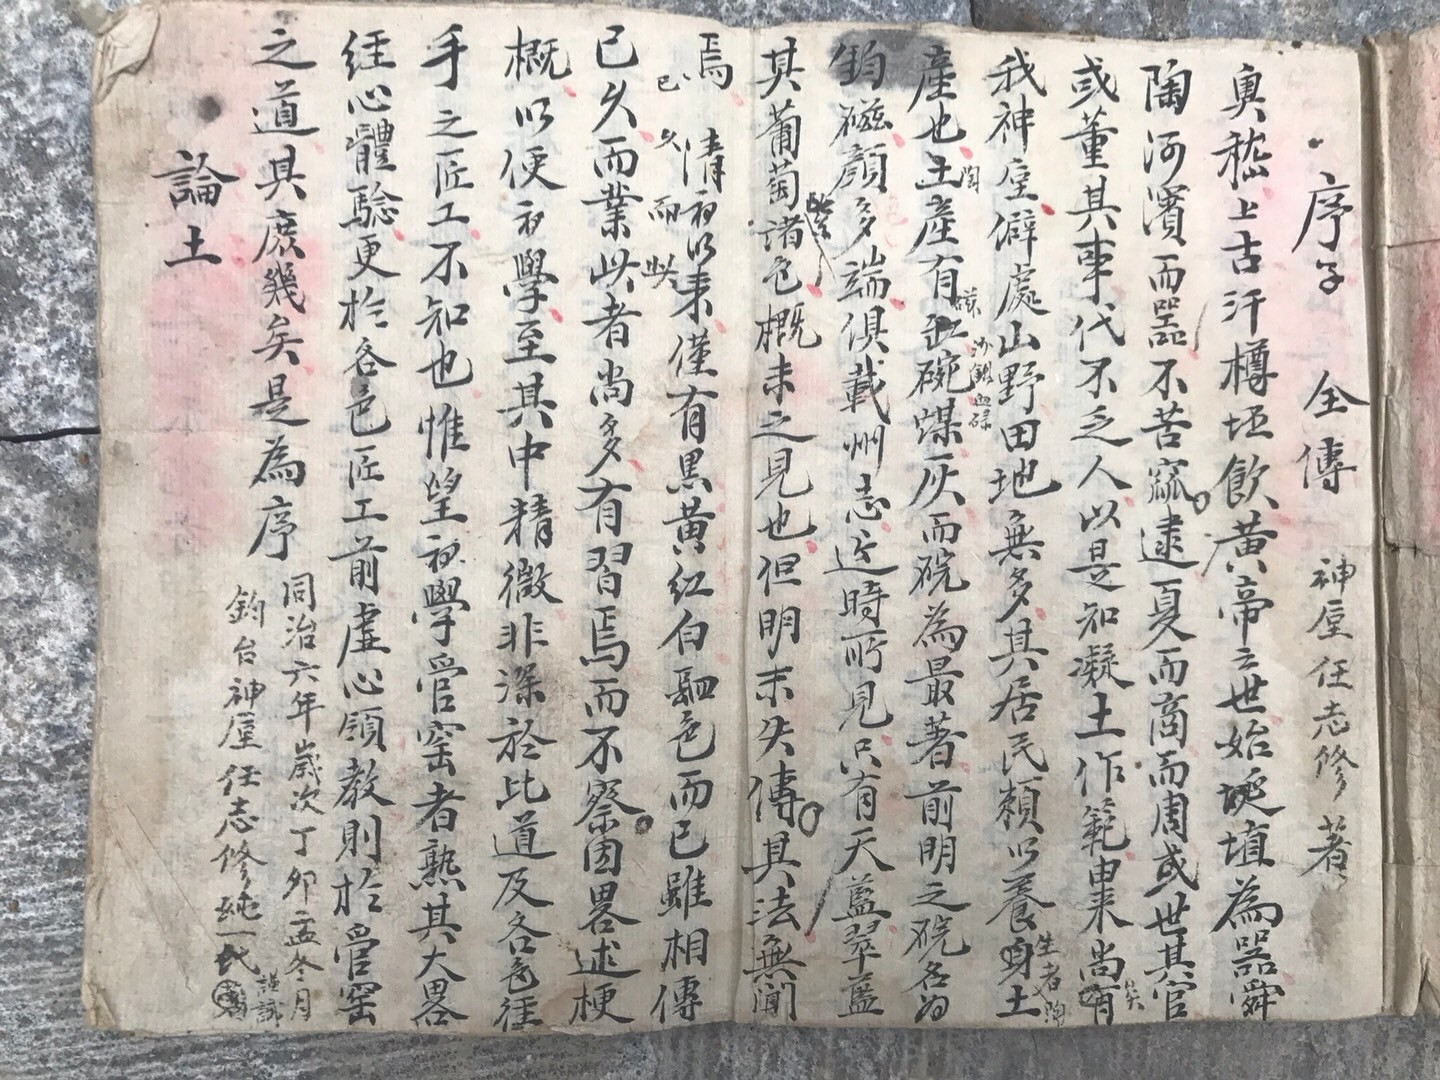 序 全傳 神垕任志修著
奧稽上古汗樽坯飲黃帝之世始埏埴為器舜
陶河濱而器不苦窳逮夏而商而周或世其官
或董其事代不乏人以是知凝土作範由來尚有矣
我神垕僻處山野田地無多其居民賴以養身土
生者陶
產也土產有缸碗煤灰而碗為最著前明之碗名為
陶
磁
鈞磁顏多端俱載州志近時所見只有天藍翠藍
其葡萄諸色概未之見也但明末失傳其法無聞
紫
焉 清初以來僅有黑黃紅白四色而已雖相傳
已久而業此
已久而業此者尚多有習焉而不察因畧述梗
概以便初學至其中精微非深於比道及各色往
手之匠工不知也惟望初學管窑者熟其大畧
經心體驗更於各色匠工前虛心領教則於管窑
之道其庶幾矣是為序
同治六年歲次丁卯孟冬月
鈞台神垕任志修純一氏
謹識
論土